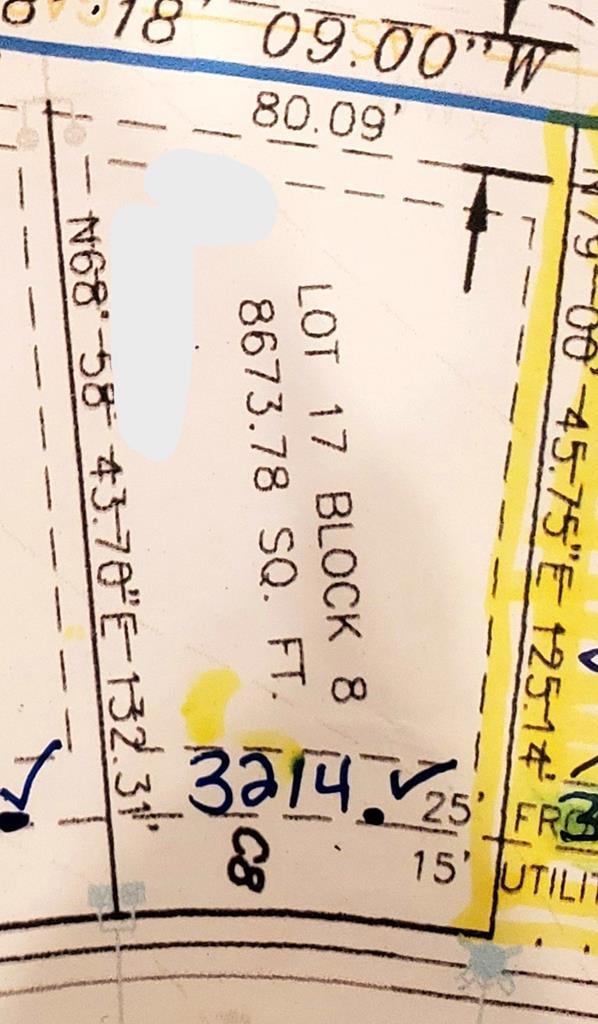 09.00"W
80.09'
N68°-58'-43.70"E-132.31'
LOT 17 BLOCK 8
8673.78 SQ. FT.
N79°-00'-45.75"E 125.14'
3214
25'
15'
C8
UTILIT